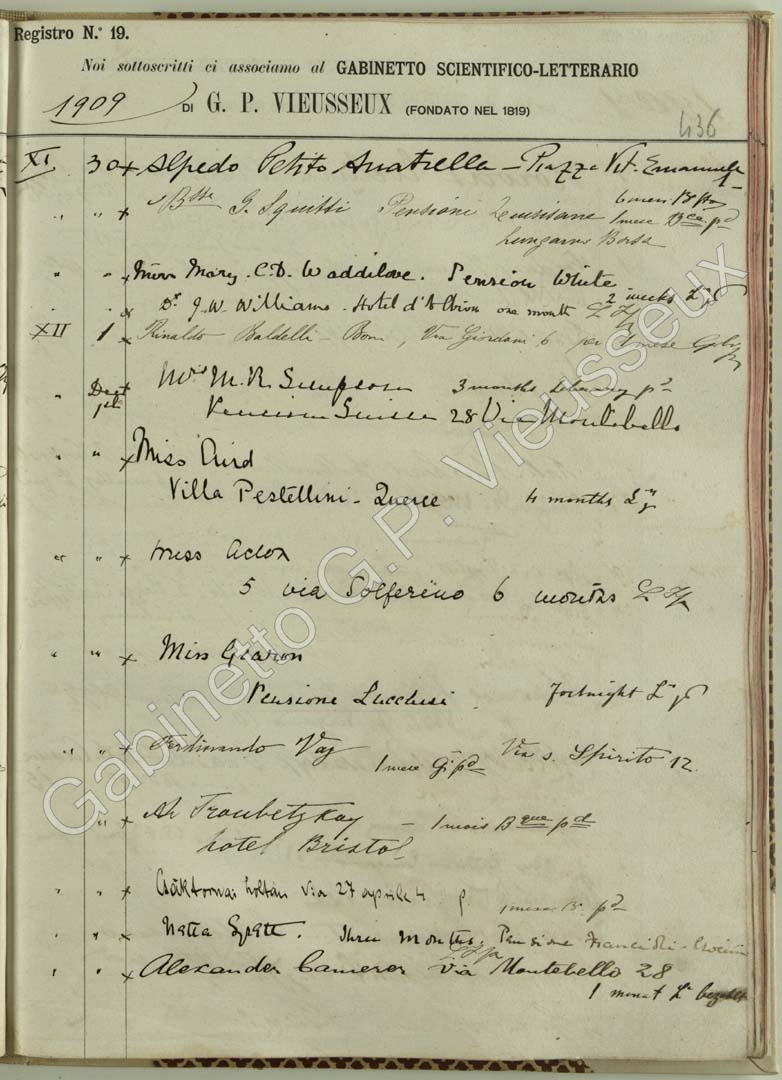 Registro N.° 19.
Noi sottoscritti ci associamo al GABINETTO SCIENTIFICO-LETTERARIO
1909 DI G. P. VIEUSSEUX (FONDATO NEL 1819)
436
XI 30 x Alfredo Petito Anatrella – Piazza Vit. Emanuele
" " x G. Squitti Pensione
1 mese pd
Lungarno
" " x Miss Mary. C.D. Waddilove. Pension White
2 weeks
" " x Dr J. W. Williams. Hotel d'Albion one month
XII 1 x Rinaldo Baldelli-Boni, Via Giordani 6 per 1 mese
" Dept 1st Mrs M. R. Simpson 3 months Library pd
Pension Suisse 28 Via Montebello
" " x Miss Aird
Villa Pestellini - Querce 4 months
" " x Miss Acton
5 via Solferino 6 months
" " x Miss Gearon
Pensione Lucchesi. Fortnight
" " x Ferdinando Vaj 1 mese pd Via S. Spirito 12.
" x Troubetzkoy – 1 mois pd
hotel Bristol
" " x Csáktornai Zoltán via 27 aprile 4
1 mese pd
" " x Three Months. Pensione
" " x Alexander Cameron Via Montebello 28
1 monat bezahlt
Gabinetto G.P. Vieusseux